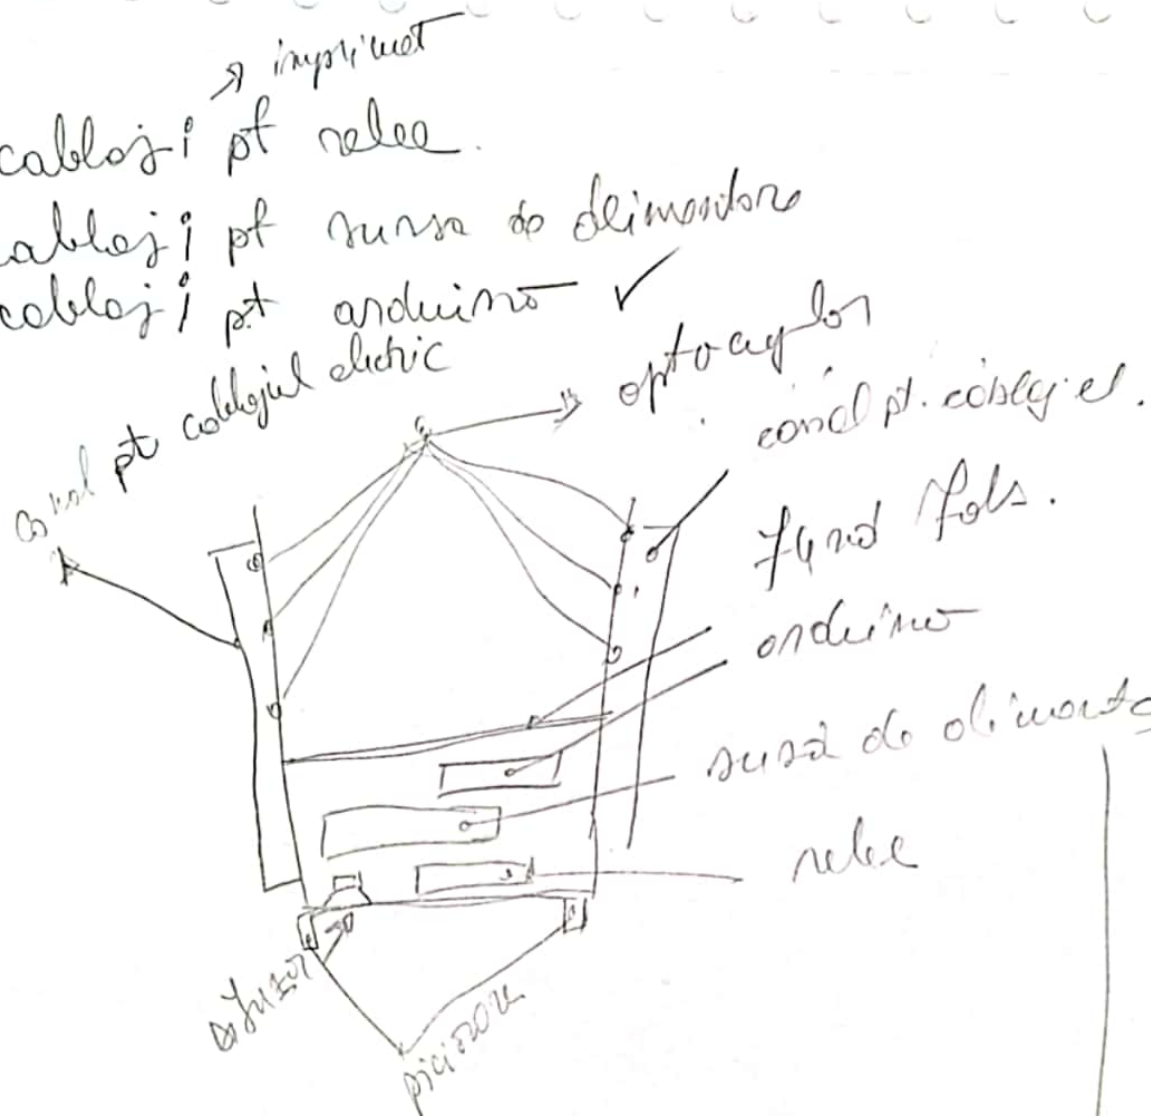 imprimat
cablaj i pt relee.
cablaj i pt sursa de alimentare
cablaj i pt arduino ✓
canal pt cablajul electric
optocuplor
canal pt. cablaj el.
fund fals.
arduino
sursă de alimenta
relee
difuzor
picioare